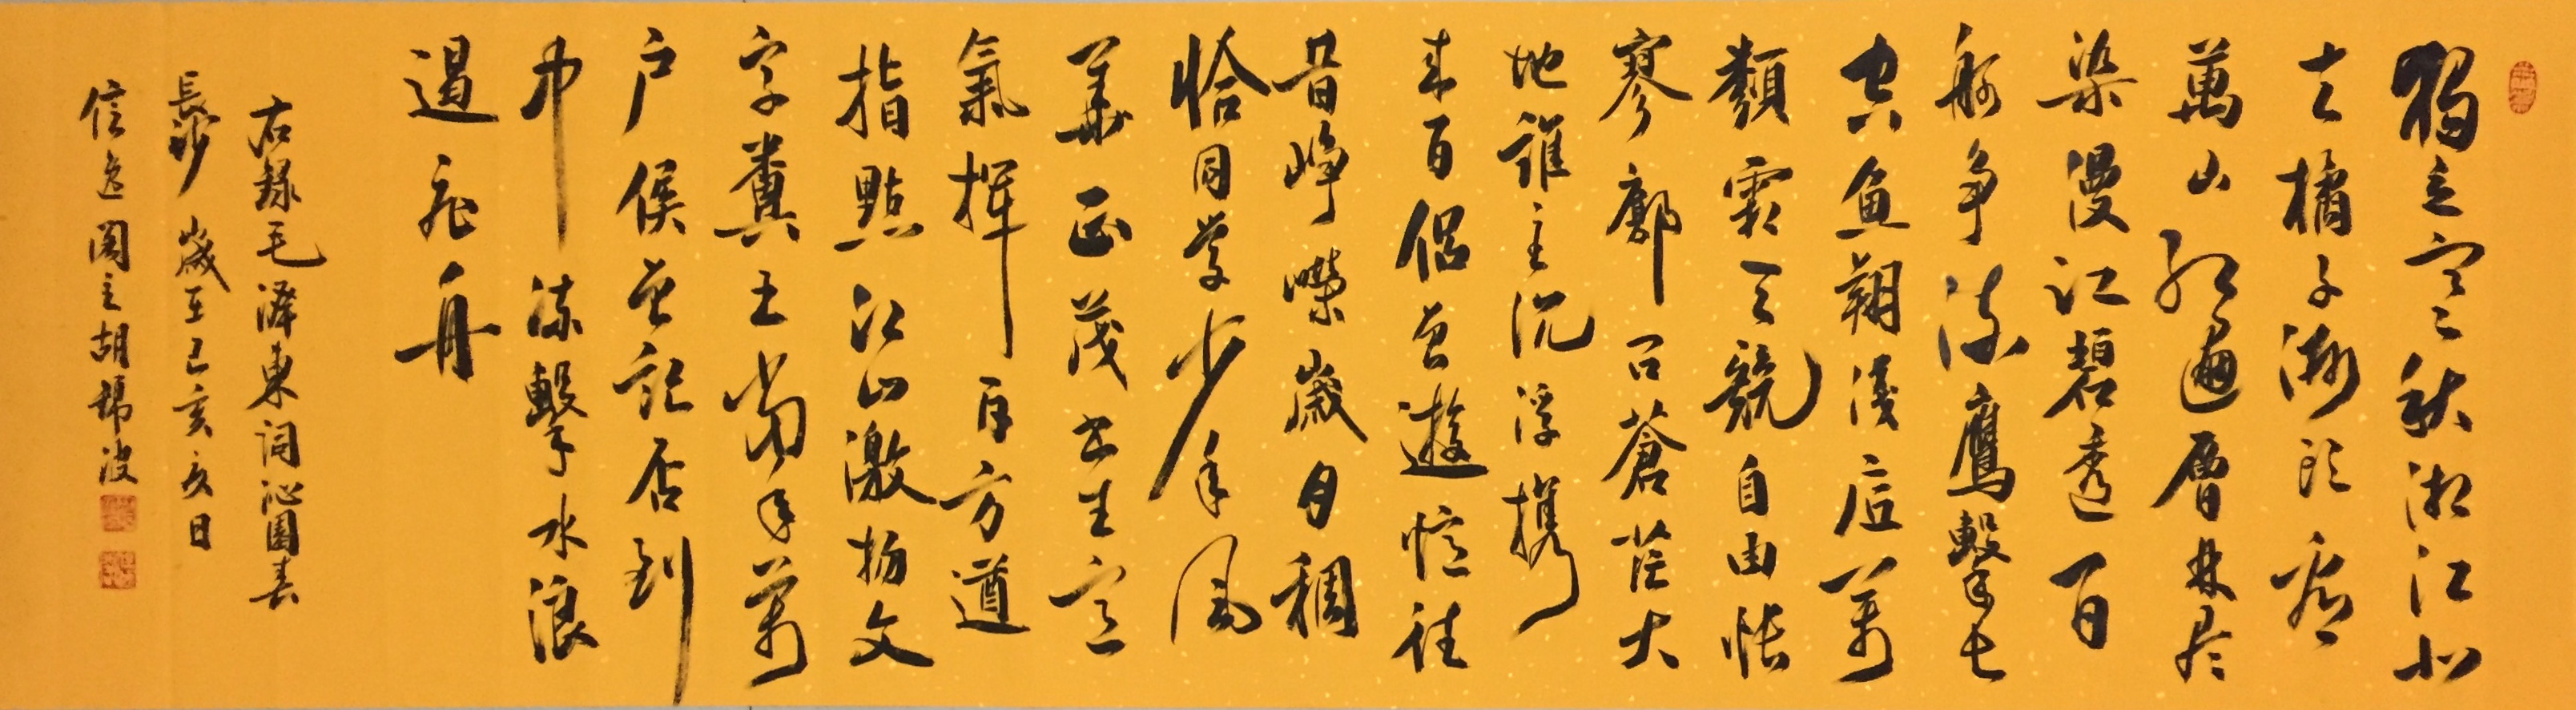 獨立寒秋湘江北
去橘子洲頭看
萬山紅遍層林盡
染漫江碧透百
舸爭流鷹擊長
空魚翔淺底萬
類霜天競自由悵
寥廓問蒼茫大
地誰主沉浮攜
来百侣曾遊憶往
昔崢嶸歲月稠
恰同學少年風
華正茂書生意
氣揮斥方遒
指點江山激揚文
字糞土當年萬
户侯曾記否到
中流擊水浪
遏飛舟
右録毛澤東詞沁園春
長沙 歲在己亥日
信逸閣主胡錦波